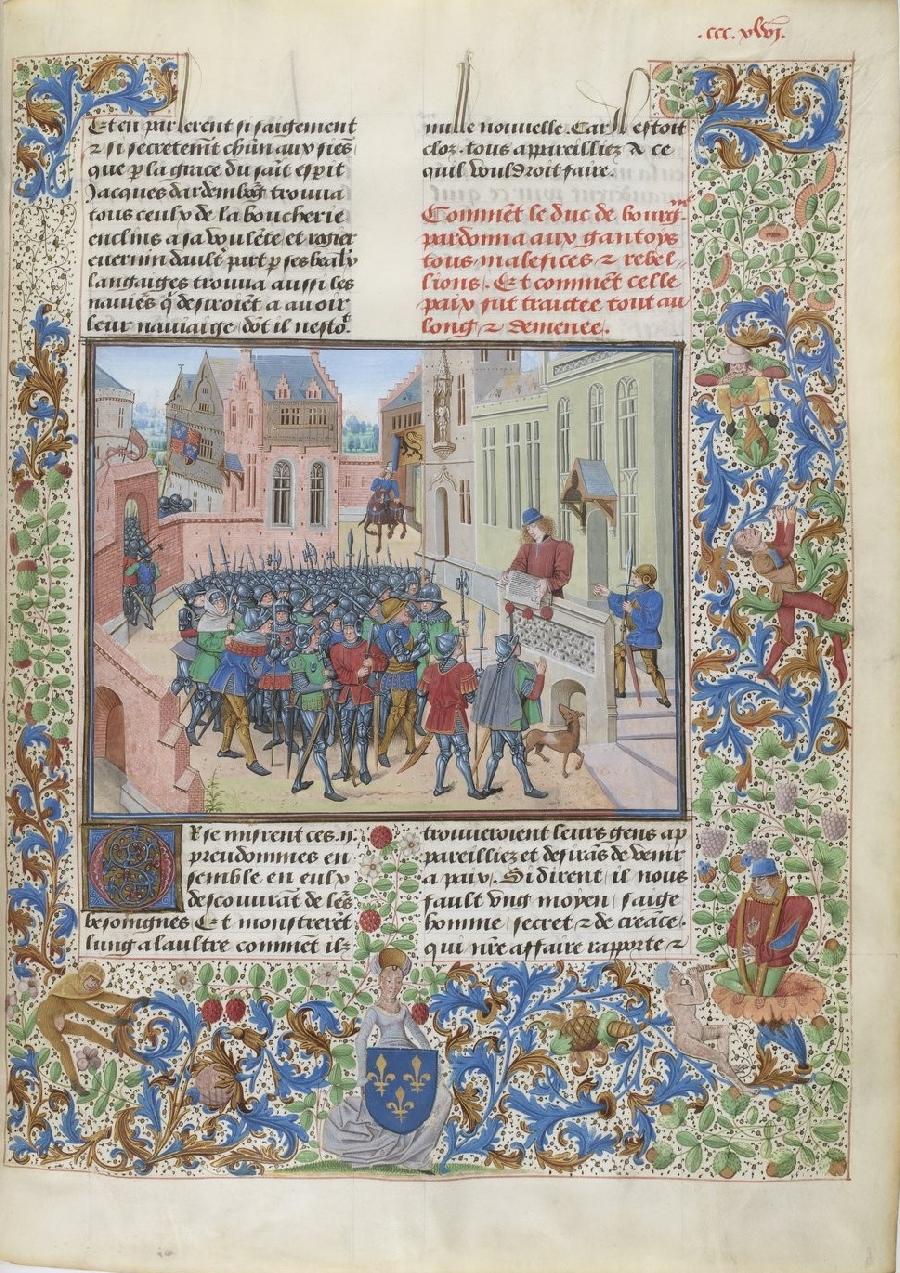 .ccc.xlvj.
Et en parlerent si saigement
⁊ si secretemt chũn aux siẽs
que p la grace du saĩt esprit
Jacques dardembog trouua
tous ceulx de la boucherie
enclins a sa voulẽte et rogier
eueruin daultͤ part p ses beaulx
langaiges trouua aussi les
nauieͬs q̃ desiroiẽt a auoir
leur nauiaige / dõt il nesto.ͭ
nulle nouuelle. Car il estoit
cloz. tous appareilliez a ce
quil vouldroit faire.
Commẽt le duc de bourgͫᵉ
pardonna aux gantoys
tous malefices ⁊ rebel-
lions. Et commẽt celle
paix fut traictee tout au
long ⁊ demenee.
Or se misrent ces .ij.
preudommes en
semble en eulx
descouurãt de lẽs
besoingnes Et monstrerẽt
lung a laultre commẽt ilz
trouueroient leurs gens ap
pareilliez et desirãs de venir
a paix. Si dirent / il nous
fault vng moyen / saige
homme / secret ⁊ de creãce.
qui nr̃e affaire rapporte ⁊